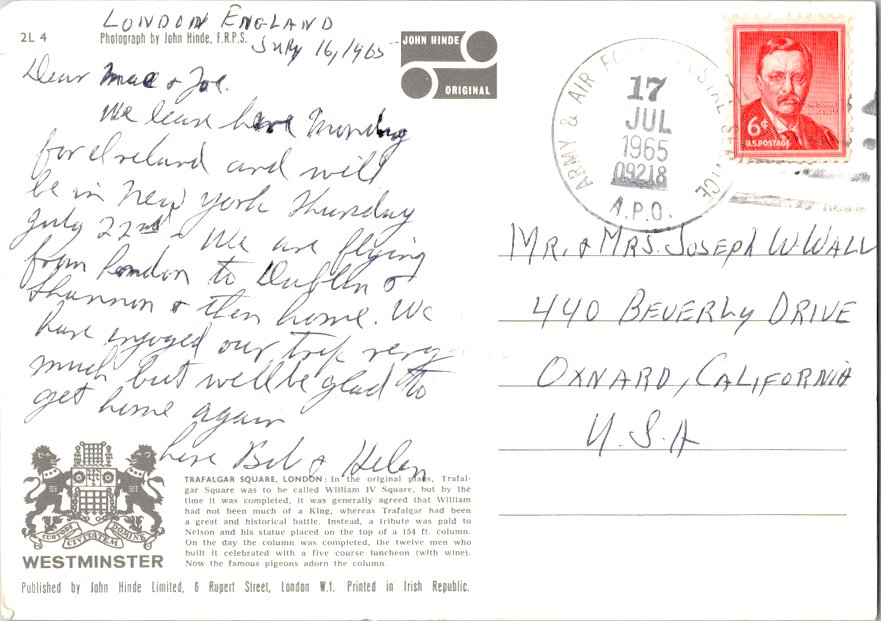 LONDON ENGLAND
2L 4
Photograph by John Hinde, F.R.P.S.
July 16, 1965
JOHN HINDE
ORIGINAL
Dear Mae & Joe.
We leave here Monday
for Ireland and will
be in New York Thursday
July 22nd. We are flying
from London to Dublin &
Shannon & then home. We
have enjoyed our trip very
much but will be glad to
get home again
Love Bob & Helen
ARMY & AIR POSTAL SERVICE
17
JUL
1965
09218
A.P.O.
THEODORE
ROOSEVELT
6¢
U.S. POSTAGE
MR. & MRS. JOSEPH W. WALL
440 BEVERLY DRIVE
OXNARD, CALIFORNIA
U.S.A
CUSTODI CIVITATEM DOMINE
WESTMINSTER
TRAFALGAR SQUARE, LONDON: In the original plans, Trafal-
gar Square was to be called William IV Square, but by the
time it was completed, it was generally agreed that William
had not been much of a King, whereas Trafalgar had been
a great and historical battle. Instead, a tribute was paid to
Nelson and his statue placed on the top of a 154 ft. column.
On the day the column was completed, the twelve men who
built it celebrated with a five course luncheon (with wine).
Now the famous pigeons adorn the column.
Published by John Hinde Limited, 6 Rupert Street, London W.1. Printed in Irish Republic.